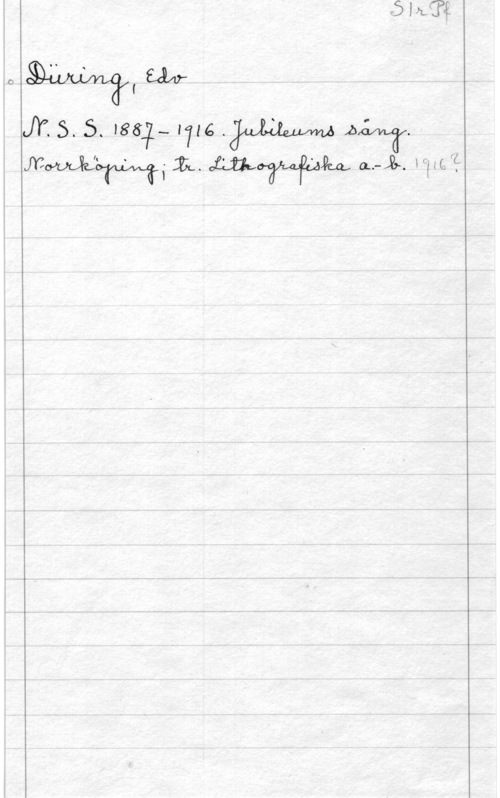 Slr Pf
Düring, Edv
N. S. S. 1887-1916. Jubileums sång.
Norrköping; tr. Lithografiska a.-b. 1916?